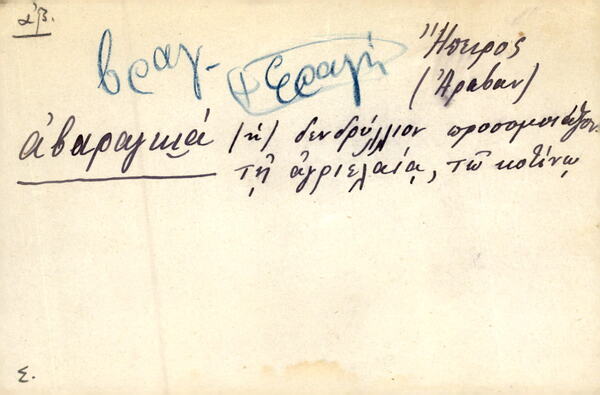 ἀβ.
βραγ.
Ἤπειρος
(Ἀραβαν)
ἀβαραγκιά (ἡ) δενδρύλλιον προσομοιάζον
τῇ ἀγριελαίᾳ, τῷ κοτίνῳ
Σ.